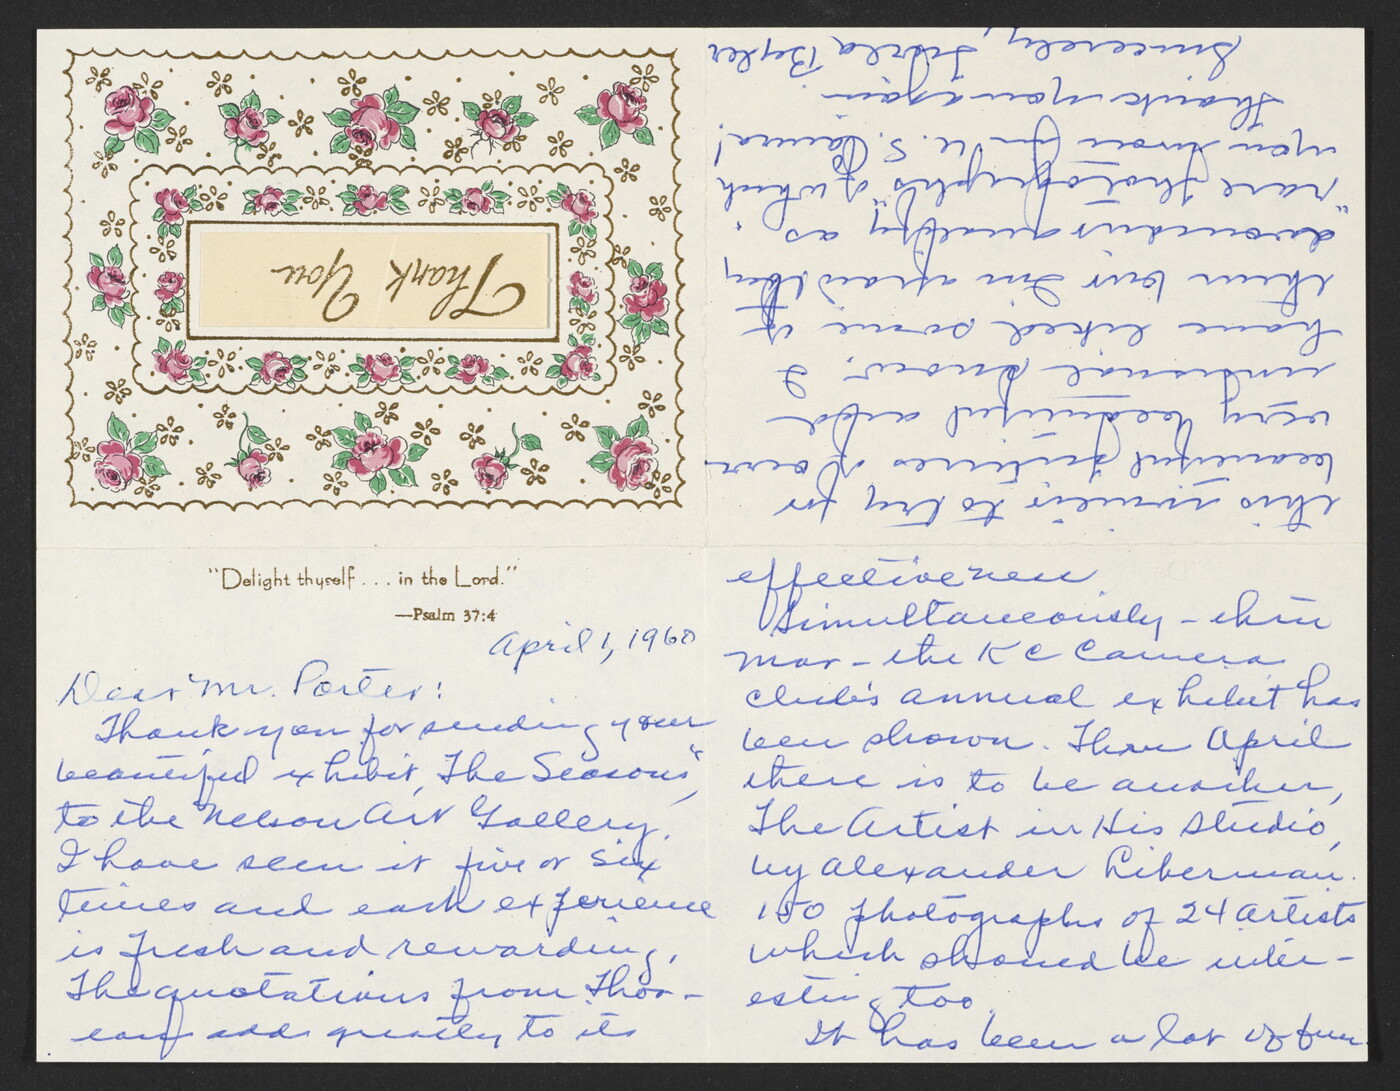 Thank You
"Delight thyself . . . in the Lord."
—Psalm 37:4
April 1, 1960
Dear Mr. Porter:
Thank you for sending your
beautiful exhibit, "The Seasons",
to the Nelson Art Gallery.
I have seen it five or six
times and each experience
is fresh and rewarding.
The quotations from Thor-
eau add greatly to its
effectiveness
Simultaneously – thru
Mar – the K C Camera
Club's annual exhibit has
been shown. Thru April
there is to be another,
The Artist in His Studio,
by Alexander Liberman.
150 photographs of 24 artists
which should be inter-
esting too.
It has been a lot of fun
this winter to try for
beautiful pictures of our
very beautiful
unusual snow. I
have liked some of
them but I'm afraid they
qualify as
"rare photographs" of which
you wrote in U. S. Camera!
Thank you again.
Sincerely, Byler